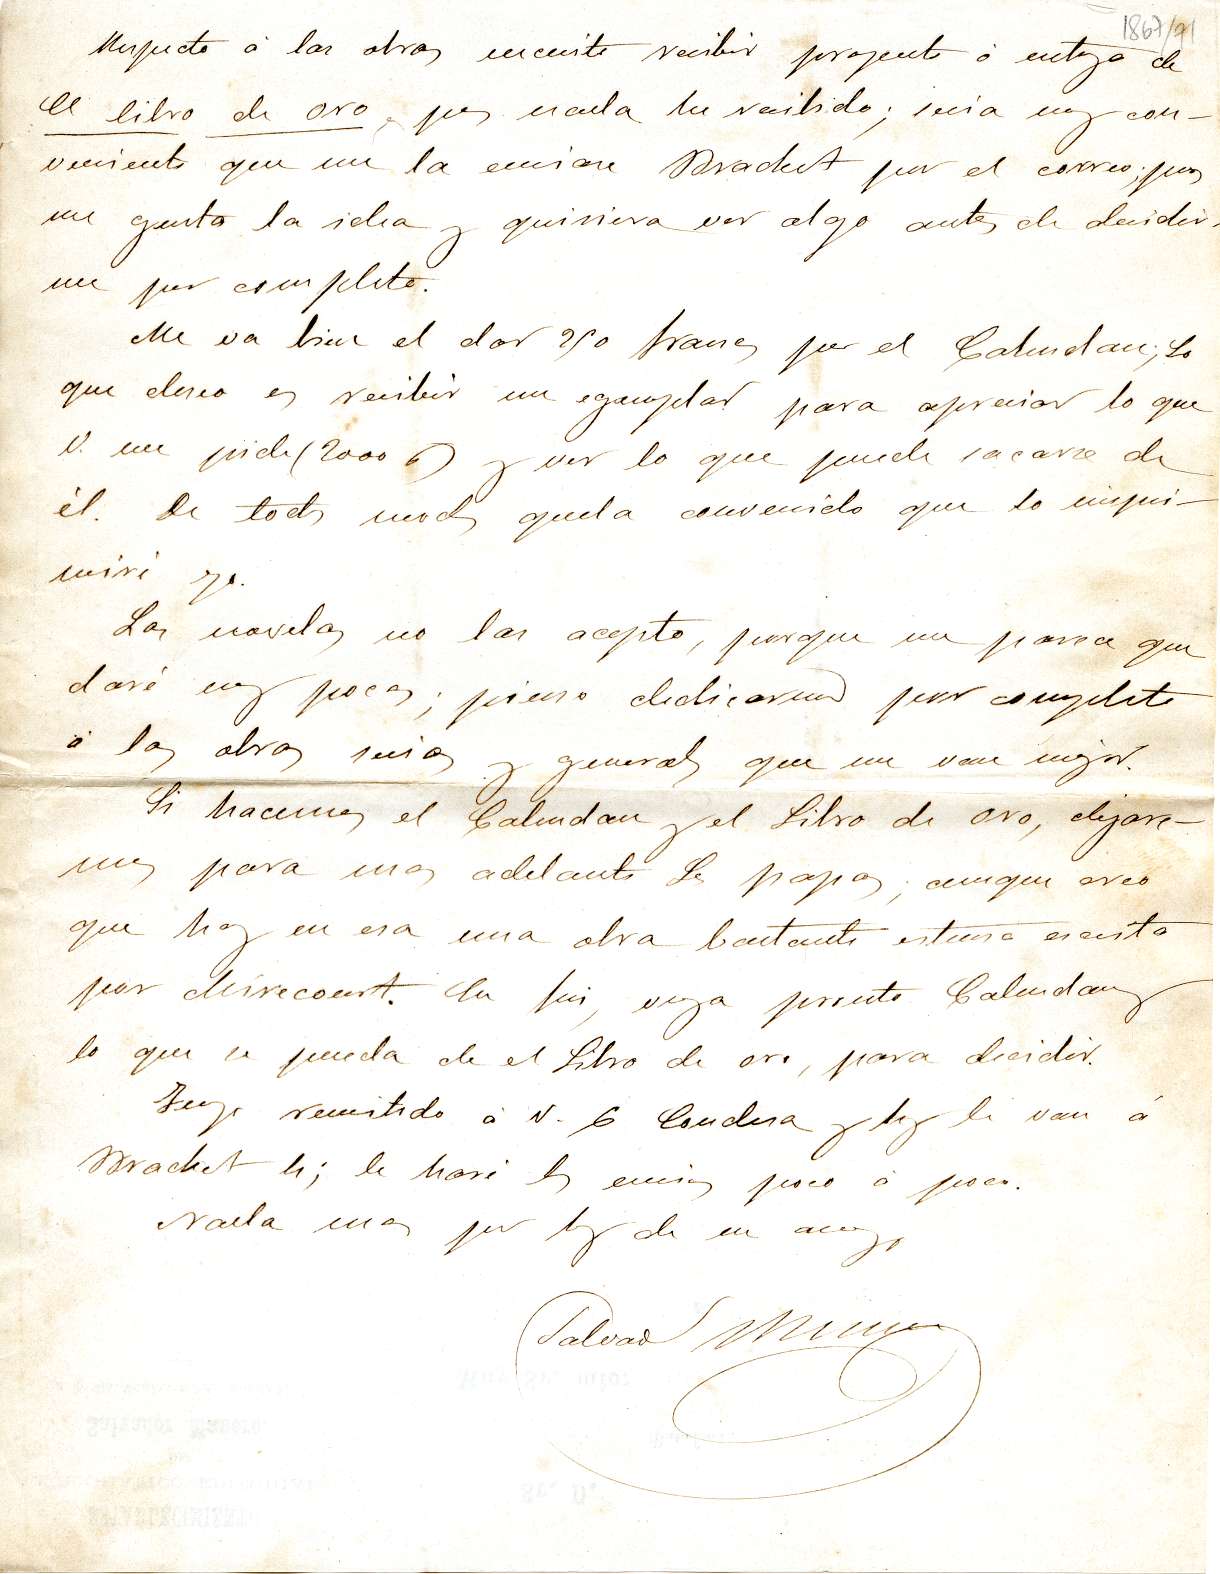 1867/91
Respecto á las obras necesito recibir prospecto ó entrega de
El libro de oro, pues nada he recibido; seria muy con-
veniente que me la enviase Brachet por el correo; pues
me gusta la idea y quisiera ver algo antes de decidir-
me por completo.
Me va bien el dar 250 francos por el Calendau; Lo
que deseo es recibir un egemplar para apreciar lo que
V. me pide (2000 ) y ver lo que puede sacarse de
él. De todos modos queda convenido que lo impri-
miré yo.
Las novelas no las acepto, porque me parece que
daré muy pocas; pienso dedicarme por completo
á las obras serias y generales que me van mejor.
Si hacemos el Calendau y el Libro de oro, dejare-
mos para mas adelante Los papas; aunque creo
que hay en esa una obra bastante estensa escrita
por Mirecourt. En fin, venga pronto Calendau y
lo que se pueda de el Libro de oro, para decidir.
Tengo remitido á V. 6 Condesa y hoy le van á
Brachet ; le haré los envios poco á poco.
Nada mas por hoy de su amigo
Salvador Manero